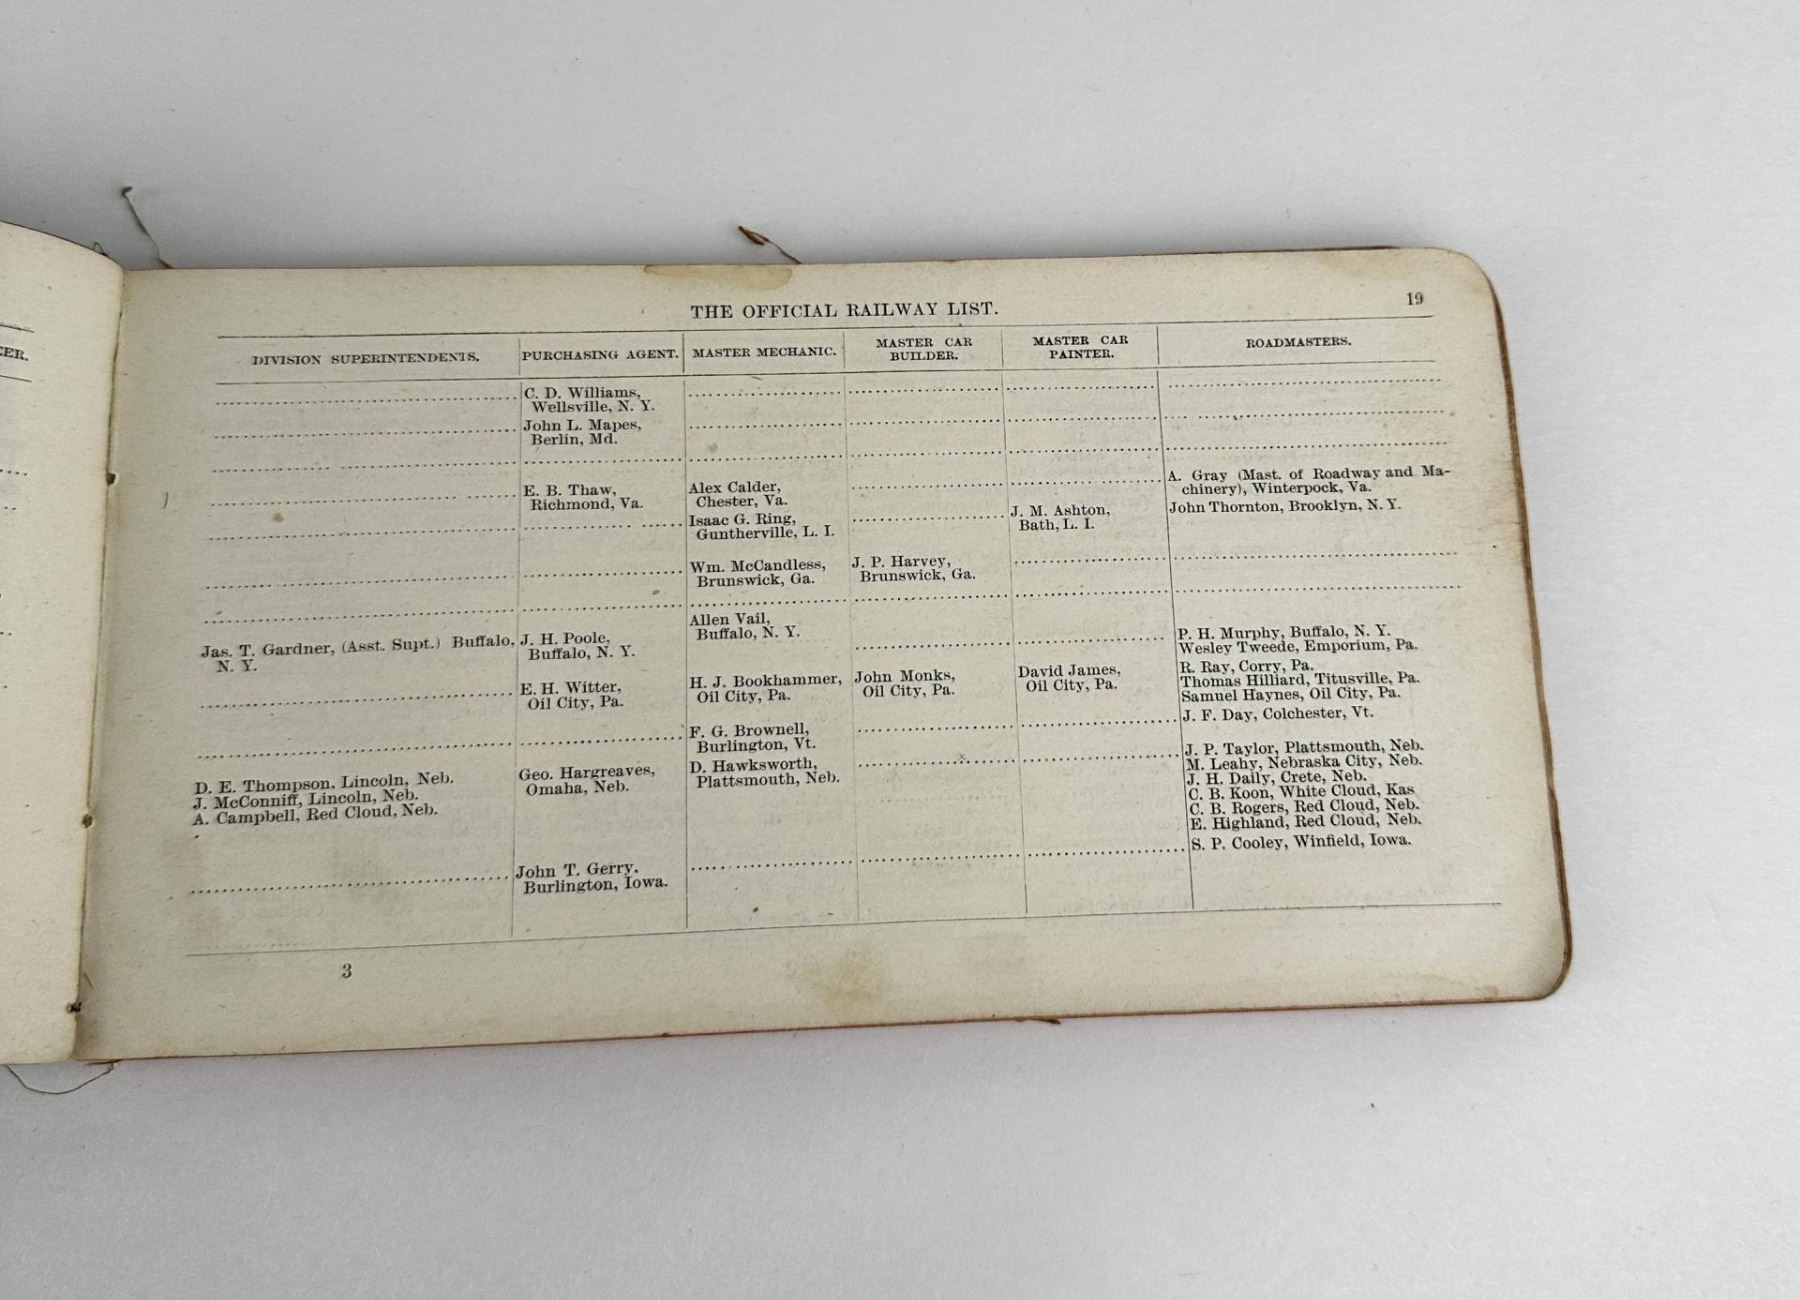 ER.
THE OFFICIAL RAILWAY LIST.
19
DIVISION SUPERINTENDENTS.
PURCHASING AGENT.
MASTER MECHANIC.
MASTER CAR
BUILDER.
MASTER CAR
PAINTER.
ROADMASTERS.
C. D. Williams,
Wellsville, N. Y.
John L. Mapes,
Berlin, Md.
E. B. Thaw,
Richmond, Va.
Alex Calder,
Chester, Va.
A. Gray (Mast. of Roadway and Ma-
chinery), Winterpock, Va.
Isaac G. Ring,
Guntherville, L. I.
J. M. Ashton,
Bath, L. I.
John Thornton, Brooklyn, N. Y.
Wm. McCandless,
Brunswick, Ga.
J. P. Harvey,
Brunswick, Ga.
Jas. T. Gardner, (Asst. Supt.) Buffalo,
N. Y.
J. H. Poole,
Buffalo, N. Y.
Allen Vail,
Buffalo, N. Y.
P. H. Murphy, Buffalo, N. Y.
Wesley Tweede, Emporium, Pa.
E. H. Witter,
Oil City, Pa.
H. J. Bookhammer,
Oil City, Pa.
John Monks,
Oil City, Pa.
David James,
Oil City, Pa.
R. Ray, Corry, Pa.
Thomas Hilliard, Titusville, Pa.
Samuel Haynes, Oil City, Pa.
F. G. Brownell,
Burlington, Vt.
J. F. Day, Colchester, Vt.
D. E. Thompson, Lincoln, Neb.
J. McConniff, Lincoln, Neb.
A. Campbell, Red Cloud, Neb.
Geo. Hargreaves,
Omaha, Neb.
D. Hawksworth,
Plattsmouth, Neb.
J. P. Taylor, Plattsmouth, Neb.
M. Leahy, Nebraska City, Neb.
J. H. Daily, Crete, Neb.
C. B. Koon, White Cloud, Kas
C. B. Rogers, Red Cloud, Neb.
E. Highland, Red Cloud, Neb.
John T. Gerry,
Burlington, Iowa.
S. P. Cooley, Winfield, Iowa.
3